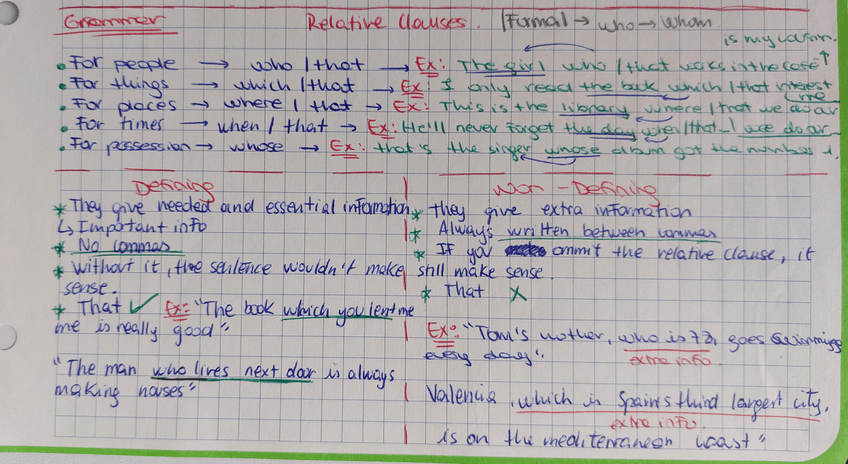 Grammer Relative Clauses. Formal → who → whom
is my cousin.
• For people → who / that → Ex: The girl who / that works in the café ↑
• For things → which / that → Ex: I only read the book which / that interest me
• For places → where / that → Ex: This is the library where / that we
• For times → when / that → Ex: He'll never forget the day when / that I
• For possession → whose → Ex: that's the singer whose album got the number 1.
Defining
* They give needed and essential information
↳ Important info
* No commas
* Without it, the sentence wouldn't make sense.
* That ✓ Ex: "The book which you lent me
me is really good".
"The man who lives next door is always
making noises"
Non-Defining
* they give extra information
* Always written between commas
* If you ommit the relative clause, it
still make sense.
* That X
Ex: "Tom's mother, who is 73, goes swimming
every day".
extra info.
Valencia, which is Spains third largest city,
extra info.
is on the mediterranean coast"